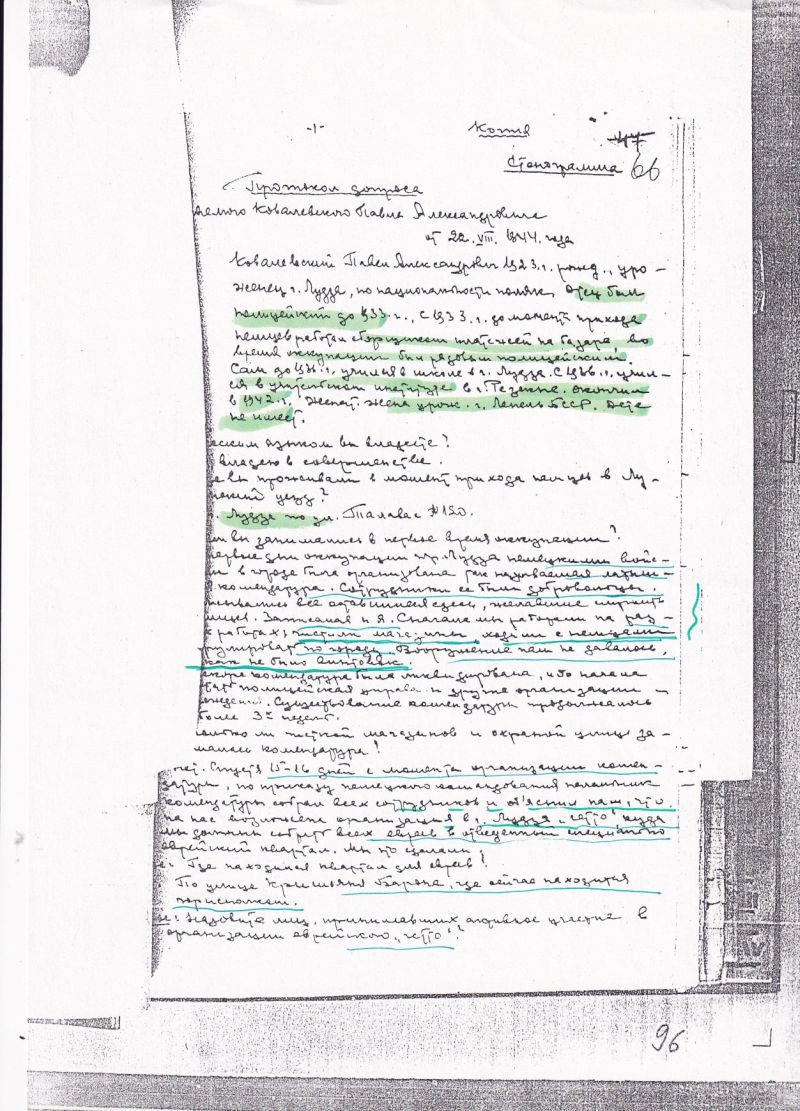 -1-
Копия
47
Стенограмма 66
Протокол допроса
аемого Ковалевского Павла Александровича
от 22. VIII. 1944. года
Ковалевский Павел Александрович 1923. г. рожд., уро-
женец г. Лудза, по национальности поляк, отец был
полицейский до 1933. г., с 1933. г. до момента прихода
немцев работал сборщиком платежей на базаре. во
время оккупации был рядовым полицейским.
Сам до 1936. г. учился в школе в г. Лудза. С 1936. г. учил-
ся в учительском институте в г. Резекне. окончил
в 1942. г. Женат. жена урож. г. Лепель БССР. дете
не имеет.
ским языком вы владеете?
владею в совершенстве.
е вы проживали в момент прихода немцев в Лу-
нский уезд?
г. Лудза по ул. Талавас № 120.
м вы занимались в первое время оккупации?
ервые дни оккупации гор. Лудза немецкими войс-
и в городе была организована так называемая латыш-
комендатура. Сотрудники ее были добровольцы.
сывались все оставшиеся здесь, желавшие служить
мцев. Записался и я. Сначала мы работали на раз-
х работах, чистили магазины, ходили с немцами
трулировать по городу. Вооружения нам не давалось,
как не было винтовок.
скоре комендатура была ликвидирована, и то начала
полицейская управа и другие организации
ждений. Существование комендатуры продолжалось
более 3х недель.
олько ли чисткой магазинов и охраной улице за-
малась комендатура?
нет. Спустя 15-16 дней с момента организации комен-
датуры, по приказу немецкого командования начальник
комендатуры собрал всех сотрудников и объяснил нам, что
на нас возложена организация в г. Лудза „гетто" куда
мы должны собрать всех евреев в отведенный специально
еврейский квартал. Мы это сделали
с: Где находился квартал для евреев?
По улице Кришьяня Барона, где сейчас находится
горисполком.
с: Назовите лиц, принимавших активное участие в
организации еврейского „гетто"?
96